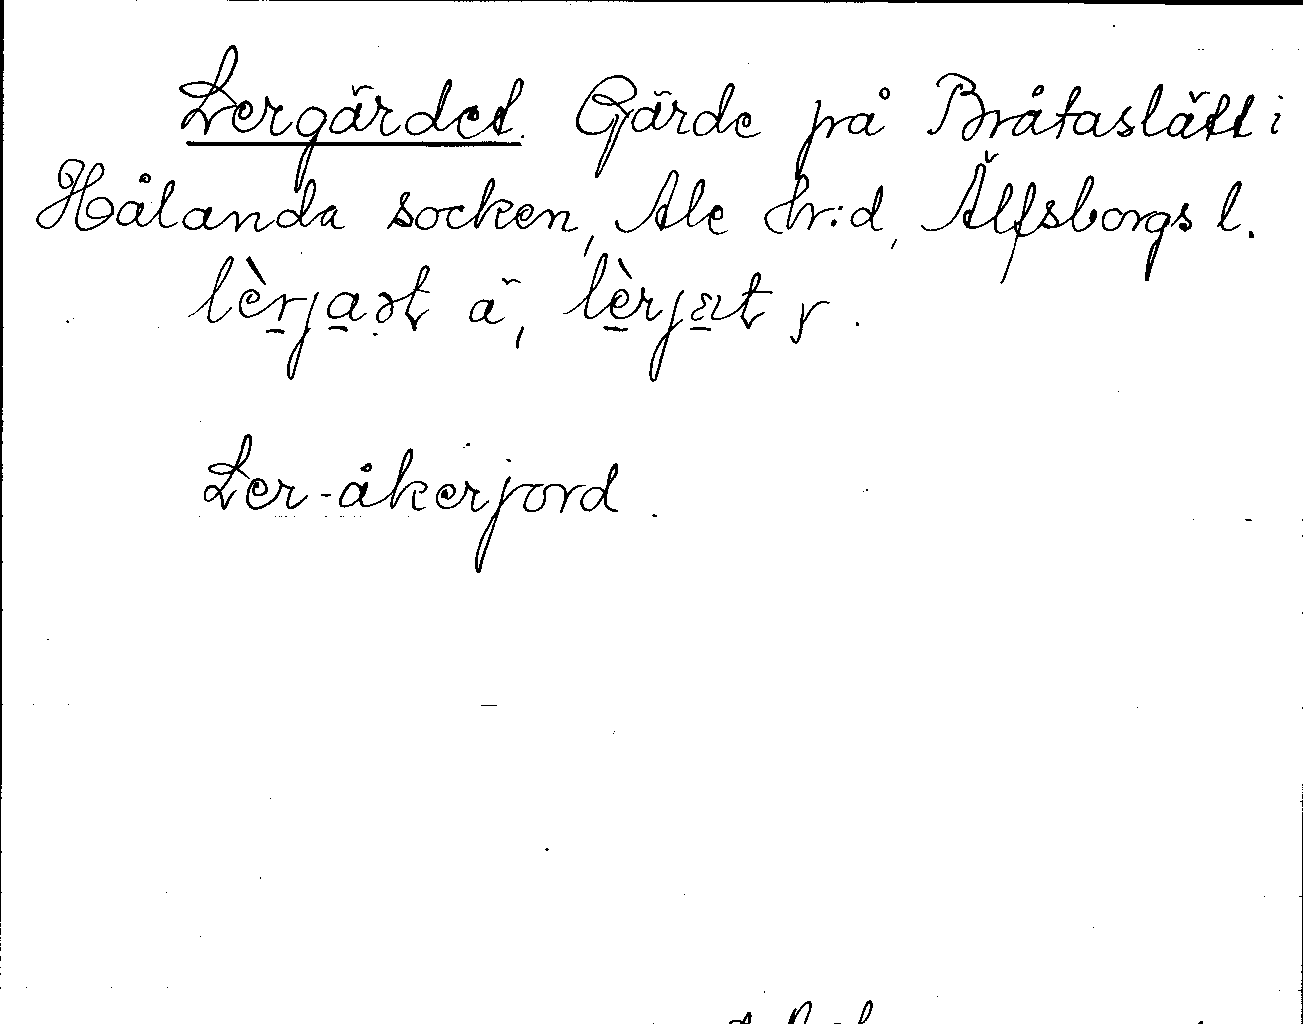 Lergärdet. Gärde på Bråtaslätt i
Hålanda socken, Ale hr:d, Älfsborgs l.
lèrjaət ä, lèrjæt y.
Ler-åkerjord.